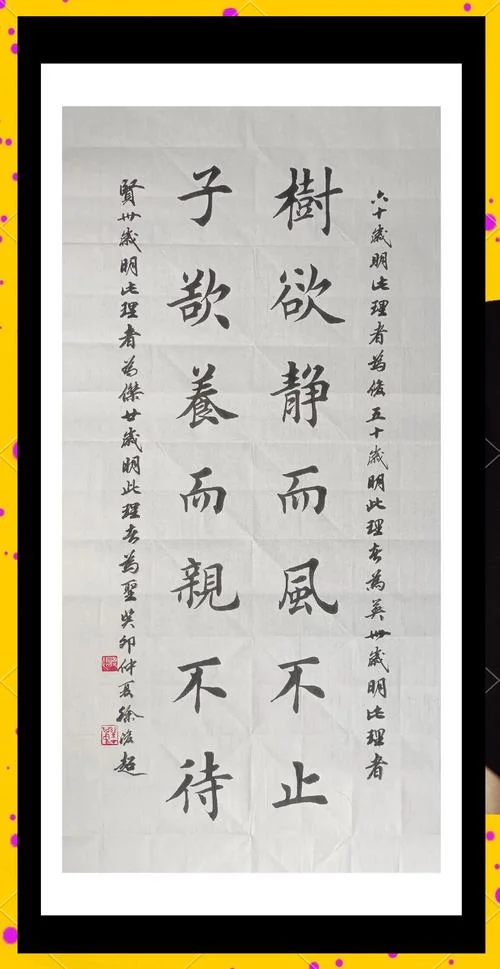 六十歲明此理者為俊五十歲明此理者為英卌歲明此理者
樹欲静而風不止
子欲養而親不待
賢卅歲明此理者為傑廿歲明此理者為聖癸卯仲夏徐超